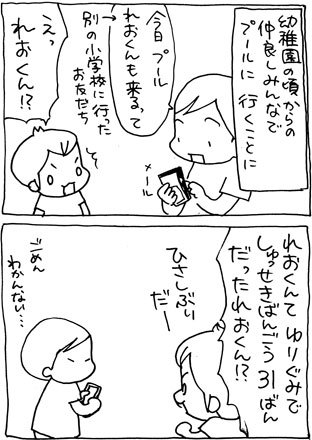 幼稚園の頃からの
仲良しみんなで
プールに 行くことに
今日 プール
れおくんも来るって
↑
別の小学校に行った
お友だち
メール
えっ
れおくん!?
れおくんて ゆりぐみで
しゅっせきばんごう 31ばん
だったれおくん!?
ひさしぶり
だー
ごめん
わかんない…